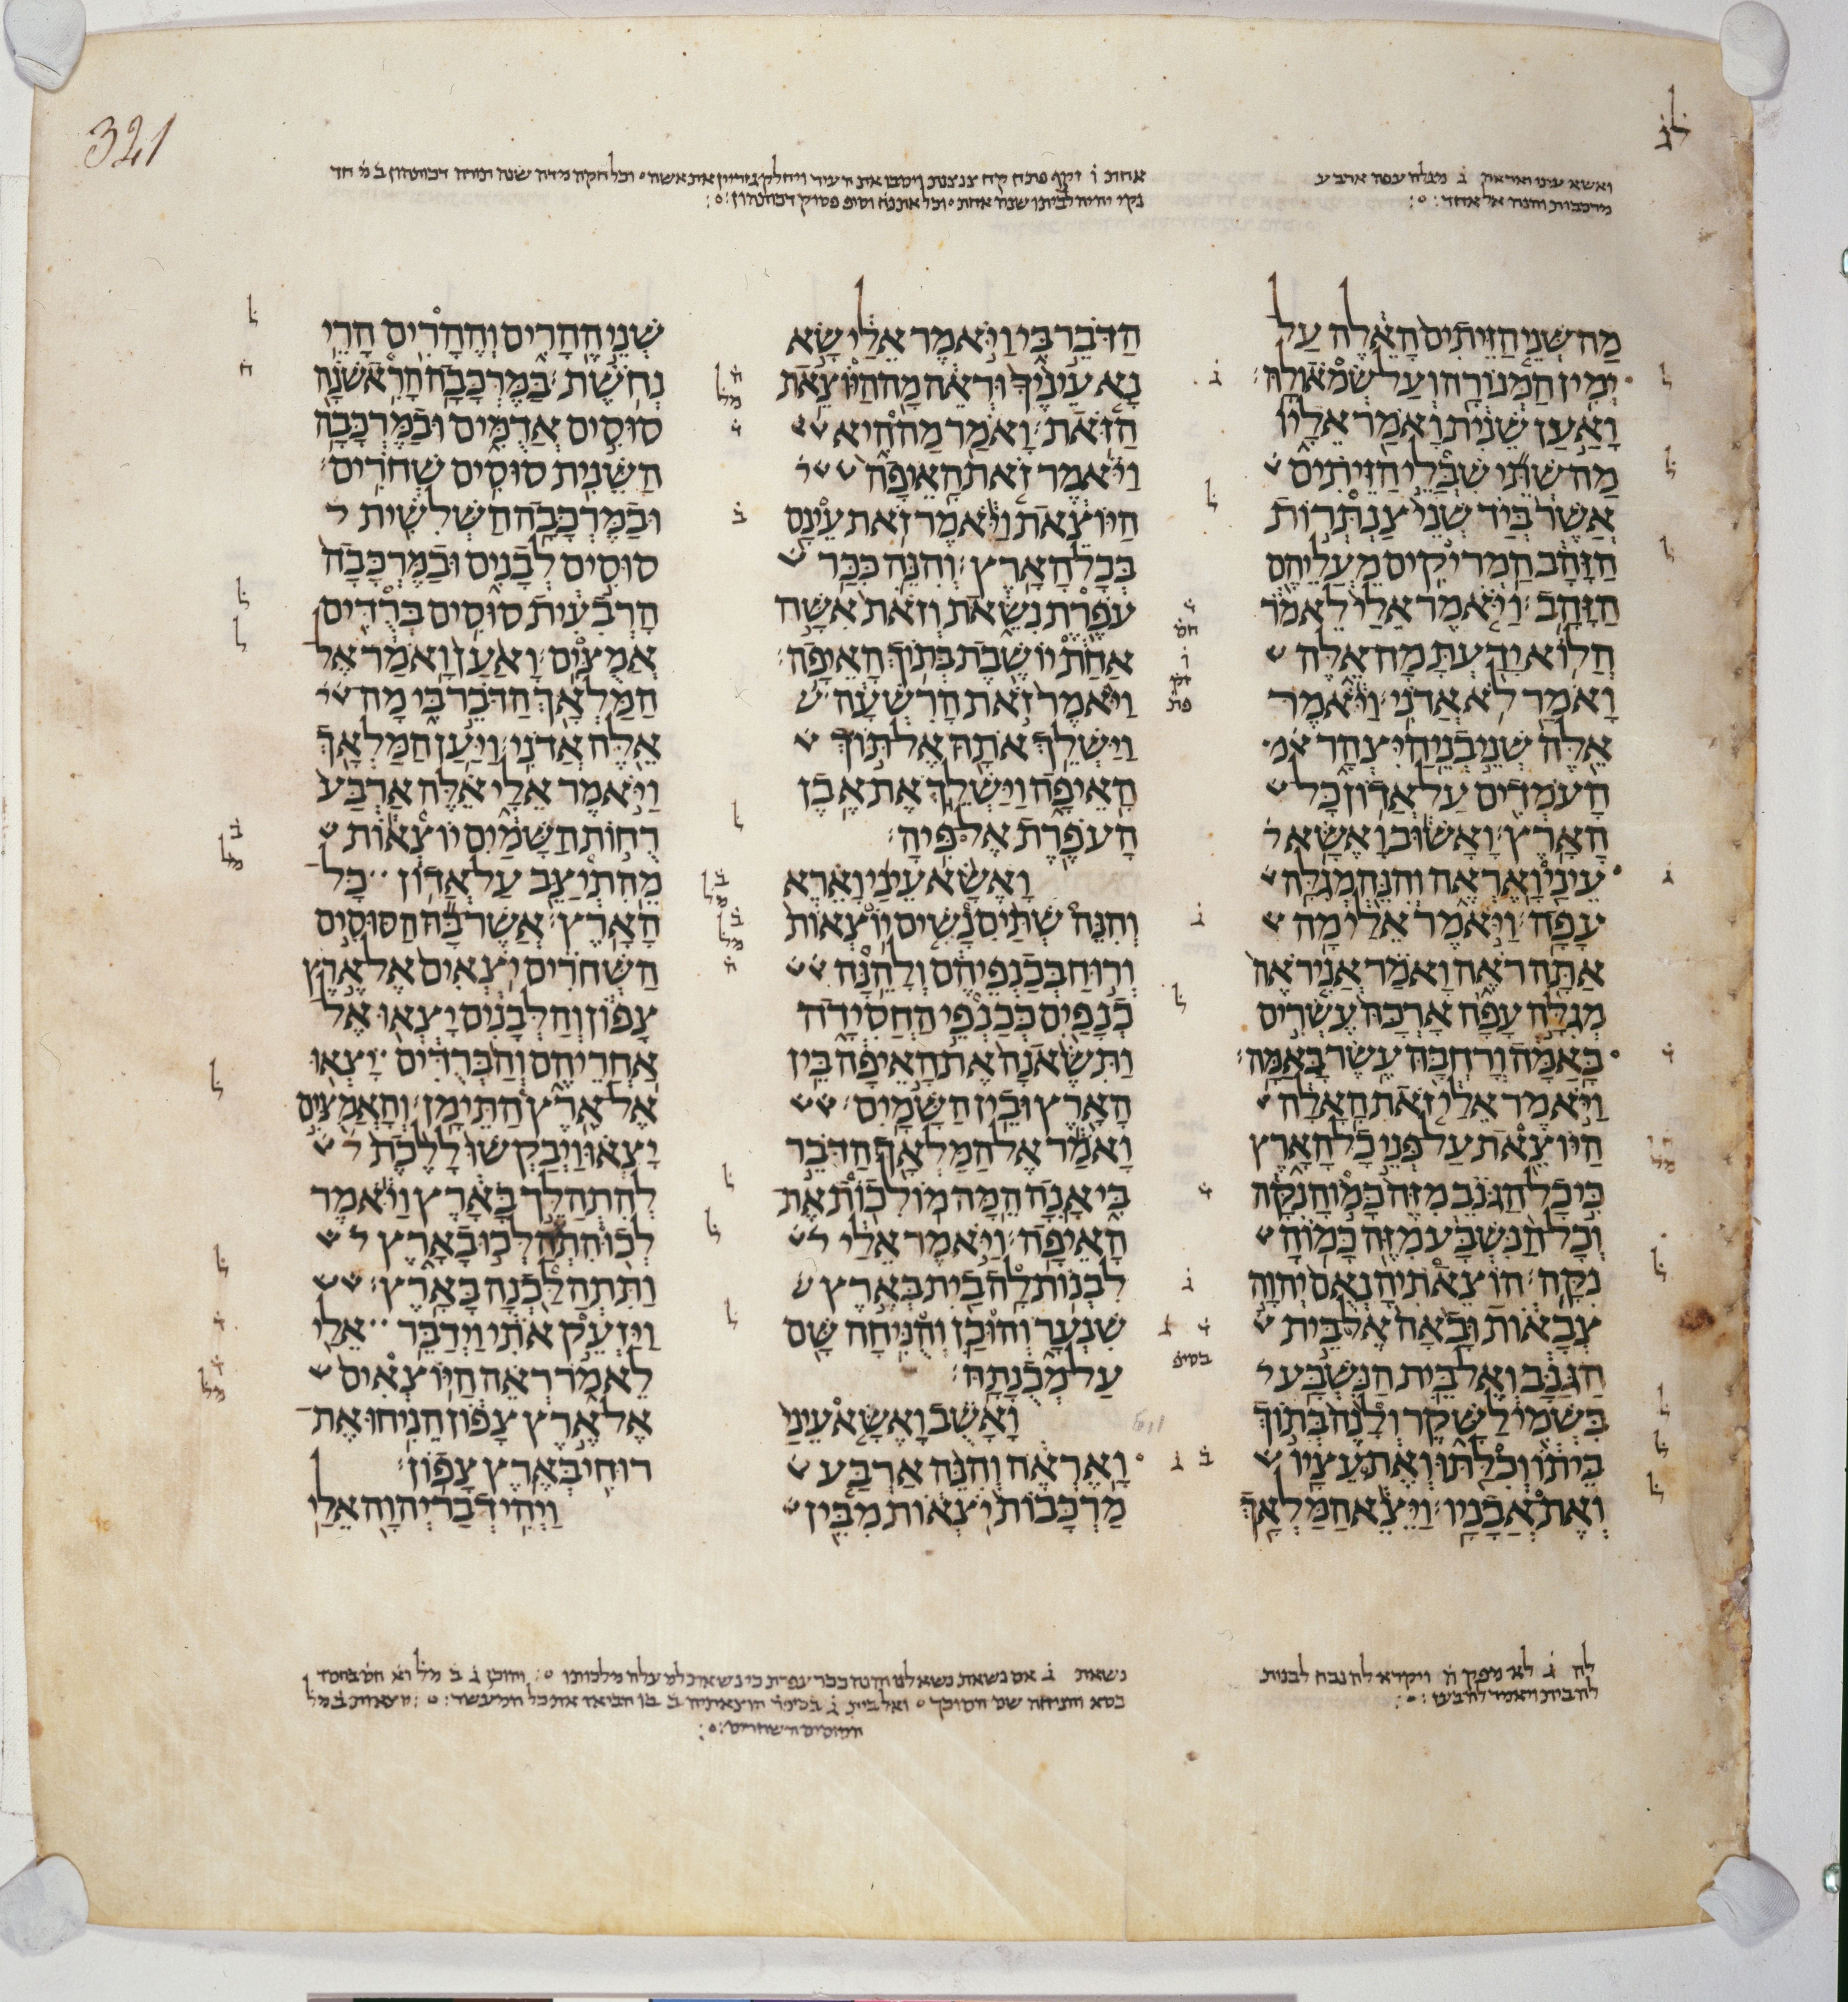 321
ואשא עיני ואראה ג מגלה עפה ארבע
מרכבות והנה איל אחד
מַה־שְּׁנֵי הַזֵּיתִים הָאֵלֶּה עַל־
יְמִין הַמְּנוֹרָה וְעַל־שְׂמֹאולָהּ׃
וָאַעַן שֵׁנִית וָאֹמַר אֵלָיו
מַה־שְׁתֵּי שִׁבֲּלֵי הַזֵּיתִים
אֲשֶׁר בְּיַד שְׁנֵי צַנְתְּרוֹת
הַזָּהָב הַמְרִיקִים מֵעֲלֵיהֶם
הַזָּהָב׃ וַיֹּאמֶר אֵלַי לֵאמֹר
הֲלוֹא יָדַעְתָּ מָה־אֵלֶּה
וָאֹמַר לֹא אֲדֹנִי׃ וַיֹּאמֶר
אֵלֶּה שְׁנֵי בְנֵי־הַיִּצְהָר
הָעֹמְדִים עַל־אֲדוֹן כָּל־
הָאָרֶץ׃ וָאָשׁוּב וָאֶשָּׂא
עֵינַי וָאֶרְאֶה וְהִנֵּה מְגִלָּה
עָפָה׃ וַיֹּאמֶר אֵלַי מָה
אַתָּה רֹאֶה וָאֹמַר אֲנִי רֹאֶה
מְגִלָּה עָפָה אָרְכָּהּ עֶשְׂרִים
בָּאַמָּה וְרָחְבָּהּ עֶשֶׂר בָּאַמָּה׃
וַיֹּאמֶר אֵלַי זֹאת הָאָלָה
הַיּוֹצֵאת עַל־פְּנֵי כָל־הָאָרֶץ
כִּי כָל־הַגֹּנֵב מִזֶּה כָּמוֹהָ נִקָּה
וְכָל־הַנִּשְׁבָּע מִזֶּה כָּמוֹהָ
נִקָּה׃ הוֹצֵאתִיהָ נְאֻם יְהוָה
צְבָאוֹת וּבָאָה אֶל־בֵּית
הַגַּנָּב וְאֶל־בֵּית הַנִּשְׁבָּע
בִּשְׁמִי לַשָּׁקֶר וְלָנֶה בְּתוֹךְ
בֵּיתוֹ וְכִלַּתּוּ וְאֶת־עֵצָיו
וְאֶת־אֲבָנָיו׃ וַיֵּצֵא הַמַּלְאָךְ
הַדֹּבֵר בִּי וַיֹּאמֶר אֵלַי שָׂא
נָא עֵינֶיךָ וּרְאֵה מָה הַיּוֹצֵאת
הַזֹּאת׃ וָאֹמַר מַה־הִיא
וַיֹּאמֶר זֹאת הָאֵיפָה
הַיּוֹצֵאת וַיֹּאמֶר זֹאת עֵינָם
בְּכָל־הָאָרֶץ׃ וְהִנֵּה כִּכַּר
עֹפֶרֶת נִשֵּׂאת וְזֹאת אִשָּׁה
אַחַת יוֹשֶׁבֶת בְּתוֹךְ הָאֵיפָה׃
וַיֹּאמֶר זֹאת הָרִשְׁעָה
וַיַּשְׁלֵךְ אֹתָהּ אֶל־תּוֹךְ
הָאֵיפָה וַיַּשְׁלֵךְ אֶת־אֶבֶן
הָעֹפֶרֶת אֶל־פִּיהָ׃
וָאֶשָּׂא עֵינַי וָאֵרֶא
וְהִנֵּה שְׁתַּיִם נָשִׁים יוֹצְאוֹת
וְרוּחַ בְּכַנְפֵיהֶם וְלָהֵנָּה
כְנָפַיִם כְּכַנְפֵי הַחֲסִידָה
וַתִּשֶּׂאנָה אֶת־הָאֵיפָה בֵּין
הָאָרֶץ וּבֵין הַשָּׁמָיִם׃
וָאֹמַר אֶל־הַמַּלְאָךְ הַדֹּבֵר
בִּי אָנָה הֵמָּה מוֹלִכוֹת אֶת־
הָאֵיפָה׃ וַיֹּאמֶר אֵלַי
לִבְנוֹת־לָהֿ בַיִת בְּאֶרֶץ
שִׁנְעָר וְהוּכַן וְהֻנִּיחָה שָּׁם
עַל־מְכֻנָתָהּ׃
וָאָשֻׁב וָאֶשָּׂא עֵינַי
וָאֶרְאֶה וְהִנֵּה אַרְבַּע
מַרְכָּבוֹת יֹצְאוֹת מִבֵּין
שְׁנֵי הֶהָרִים וְהֶהָרִים הָרֵי
נְחֹשֶׁת׃ בַּמֶּרְכָּבָה הָרִאשֹׁנָה
סוּסִים אֲדֻמִּים וּבַמֶּרְכָּבָה
הַשֵּׁנִית סוּסִים שְׁחֹרִים׃
וּבַמֶּרְכָּבָה הַשְּׁלִשִׁית
סוּסִים לְבָנִים וּבַמֶּרְכָּבָה
הָרְבִעִית סוּסִים בְּרֻדִּים
אֲמֻצִּים׃ וָאַעַן וָאֹמַר אֶל־
הַמַּלְאָךְ הַדֹּבֵר בִּי מָה
אֵלֶּה אֲדֹנִי׃ וַיַּעַן הַמַּלְאָךְ
וַיֹּאמֶר אֵלָי אֵלֶּה אַרְבַּע
רֻחוֹת הַשָּׁמַיִם יוֹצְאוֹת
מֵהִתְיַצֵּב עַל־אֲדוֹן כָּל־
הָאָרֶץ׃ אֲשֶׁר־בָּהּ הַסּוּסִים
הַשְּׁחֹרִים יֹצְאִים אֶל־אֶרֶץ
צָפוֹן וְהַלְּבָנִים יָצְאוּ אֶל־
אַחֲרֵיהֶם וְהַבְּרֻדִּים יָצְאוּ
אֶל־אֶרֶץ הַתֵּימָן׃ וְהָאֲמֻצִּים
יָצְאוּ וַיְבַקְשׁוּ לָלֶכֶת
לְהִתְהַלֵּךְ בָּאָרֶץ וַיֹּאמֶר
לְכוּ הִתְהַלְּכוּ בָאָרֶץ
וַתִּתְהַלַּכְנָה בָּאָרֶץ׃
וַיַּזְעֵק אֹתִי וַיְדַבֵּר אֵלַי
לֵאמֹר רְאֵה הַיּוֹצְאִים
אֶל־אֶרֶץ צָפוֹן הֵנִיחוּ אֶת־
רוּחִי בְּאֶרֶץ צָפוֹן׃
וַיְהִי דְבַר־יְהוָה אֵלַי